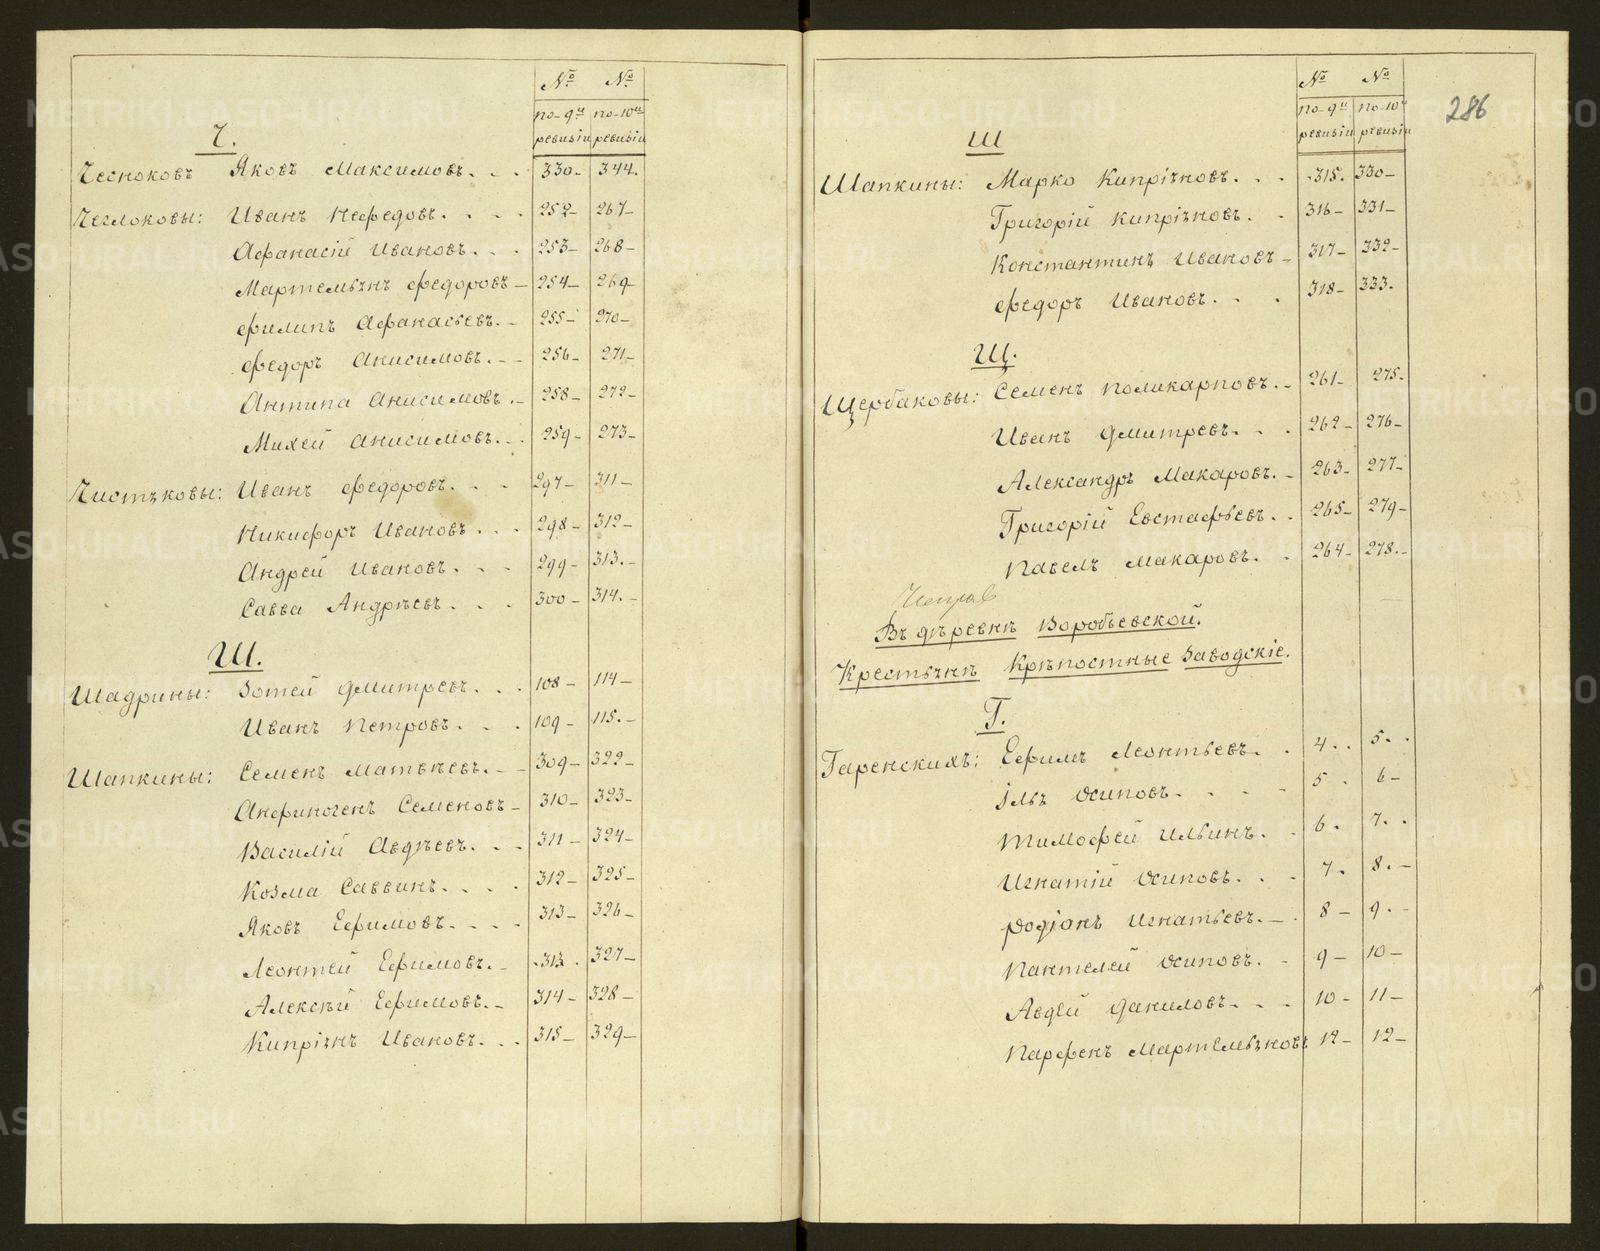 № №
по 9й по 10й
ревизiи ревизiи
Ч.
Чесноковъ Яковъ Максимовъ. . . 330. 344.
Чеглоковы: Иванъ Нефедовъ. . . . 252 267
Афанасiй Ивановъ. . . 253 268
Мартемьянъ Федоровъ 254 269
Филипъ Афанасьевъ. 255 270
Федоръ Анисимовъ. 256 271
Антипа Анисимовъ. 258 272
Михей Анисимовъ. . . 259 273
Чистяковы: Иванъ Федоровъ. . . 297 311
Никифоръ Ивановъ. . . 298 312
Андрей Ивановъ. . . 299 313.
Савва Андрѣевъ. . . 300 314.
Ш.
Шадрины: Зотей Дмитревъ. . . 108 114
Иванъ Петровъ. . . 109 115.
Шапкины: Семенъ Матвѣевъ. 309 322
Анфиногенъ Семеновъ 310 323
Василiй Авдѣевъ. . . 311 324
Козма Саввинъ. . . . 312 325
Яковъ Ефимовъ. . . . 313 326
Леонтей Ефимовъ. 313. 327
Алексѣй Ефимовъ. 314 328
Кипрiянъ Ивановъ. . . 315 329
286
№ №
по 9й по 10й
ревизiи ревизiи
Ш
Шапкины: Марко Кипрiяновъ. . . 315. 330
Григорiй Кипрiяновъ. . 316 331
Константинъ Ивановъ 317 332
Федоръ Ивановъ. . . 318 333.
Щ.
Щербаковы: Семенъ Поликарповъ. 261 275.
Иванъ Дмитревъ. . . 262 276
Александръ Макаровъ. 263 277
Григорiй Евстафьевъ. . 265 279
Павелъ Макаровъ. . 264 278.
Въ деревнѣ Воробьевской.
Крестьянѣ Крѣпостные Заводскiе.
Г.
Гаренскихъ: Ефимъ Леонтьевъ. . 4. . 5. .
Iль Осиповъ. . . . 5 . 6
Тимофей Ильинъ. . 6. 7. .
Игнатiй Осиповъ. . . 7. 8.
Родiонъ Игнатьевъ. . 8 9.
Пантелей Осиповъ. 9 10
Авдей Даниловъ. . . 10 11
Парфенъ Мартемьяновъ 12 12